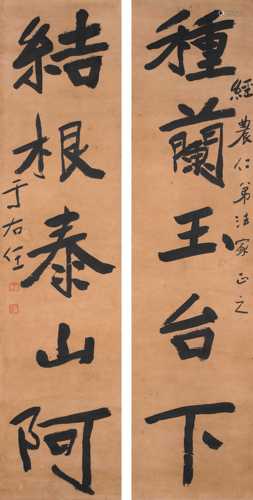 種蘭玉台下
經農仁弟法家正之
結根泰山阿
于右任